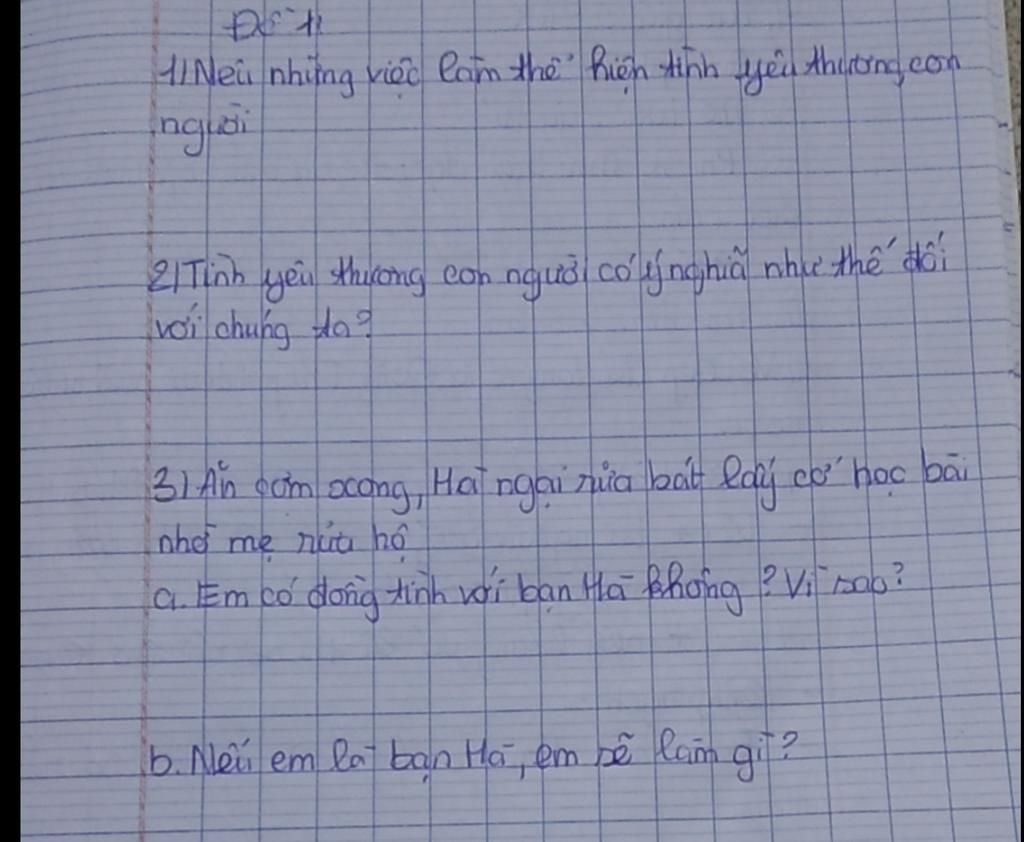 Đề 1
1) Nêu những việc làm thể hiện tình yêu thương con
người
2) Tình yêu thương con người có ý nghĩa như thế đối
với chúng ta?
3) Ăn cơm xong, Hà ngại rửa bát lấy cớ học bài
nhờ mẹ rửa hộ
a. Em có đồng tình với bạn Hà không? Vì sao?
b. Nếu em là bạn Hà, em sẽ làm gì?